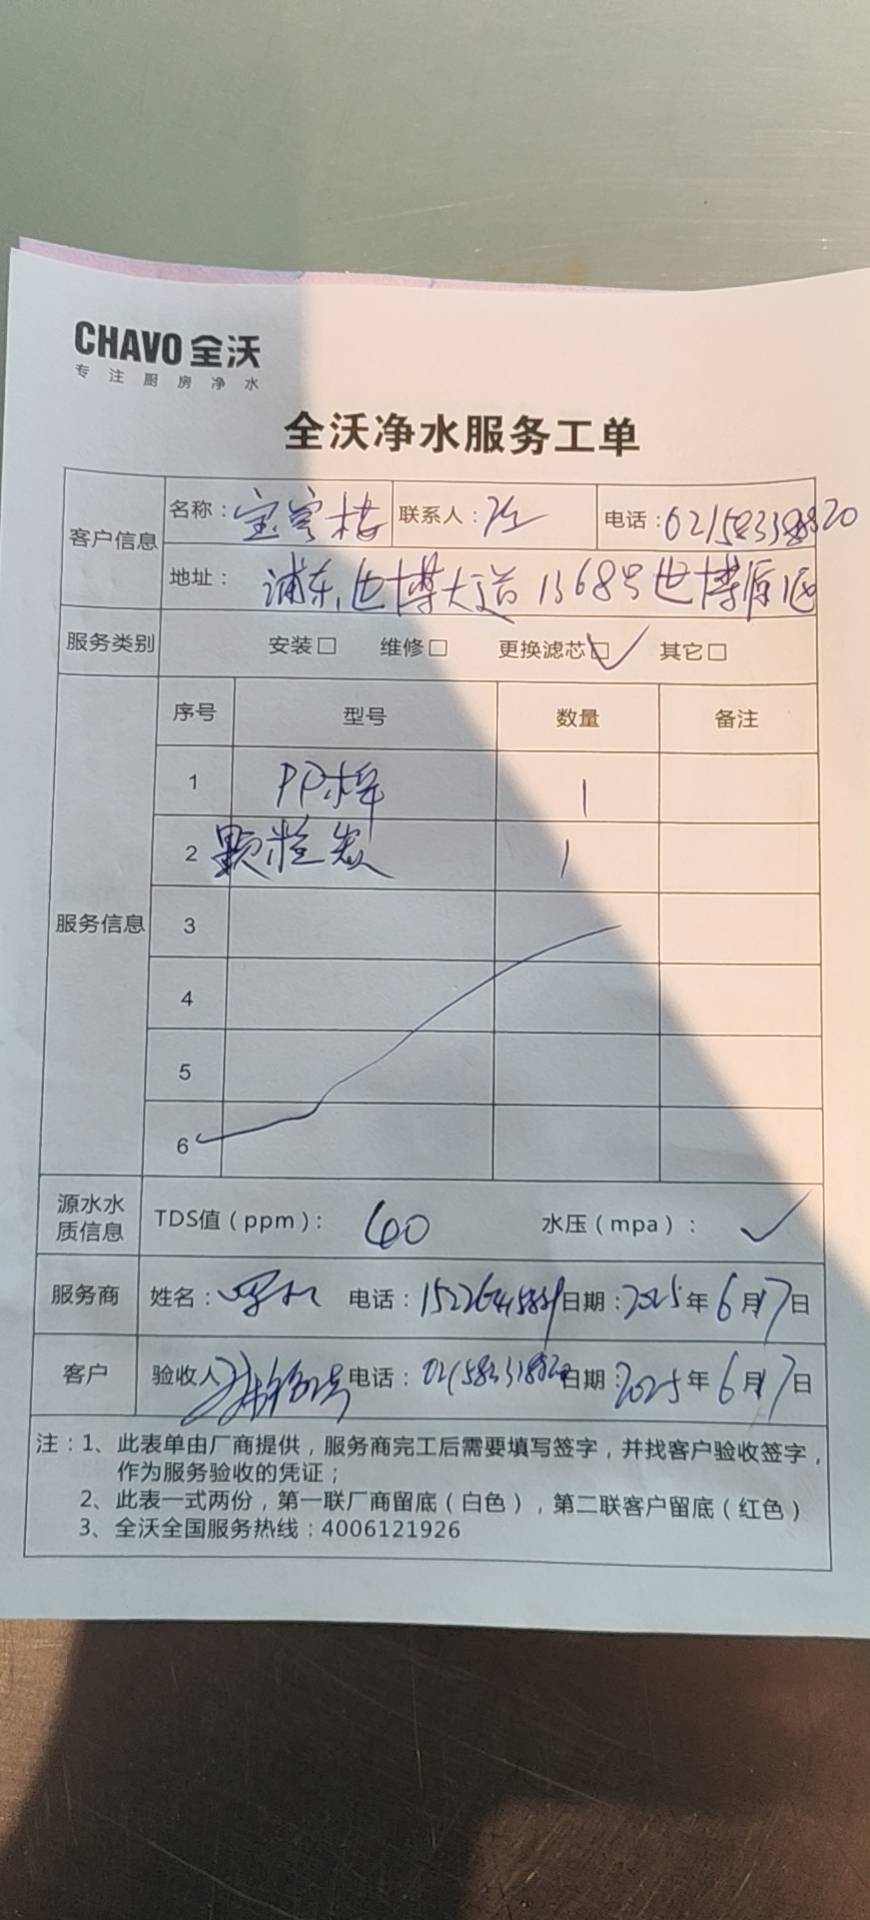 CHAVO 全沃
专注厨房净水
全沃净水服务工单
客户信息
名称：宝 楼 联系人： 电话：02158338820
地址：浦东世博大道1368号世博
服务类别 安装□ 维修□ 更换滤芯□✓ 其它□
服务信息
序号 型号 数量 备注
1 PP棉 1
2 颗粒炭 1
3
4
5
6
源水水质信息 TDS值（ppm）：60 水压（mpa）：✓
服务商 姓名： 电话： 日期：2025年6月17日
客户 验收人 电话： 日期：2025年6月17日
注：1、此表单由厂商提供，服务商完工后需要填写签字，并找客户验收签字，
作为服务验收的凭证；
2、此表一式两份，第一联厂商留底（白色），第二联客户留底（红色）
3、全沃全国服务热线：4006121926